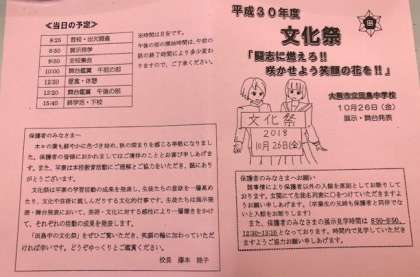 ≪当日の予定≫
8:25 登校・出欠調査
8:50 展示見学
9:50 全校集会
10:00 舞台鑑賞 午前の部
12:30 昼食・休憩
13:20 舞台鑑賞 午後の部
15:40 終学活・下校
※時間は目安です。
午後の部の開始時間は、午前の
部の終了時間により多少変わり
ますので、ご了承ください。
保護者のみなさまへ
木々の葉も鮮やかに色づき始め、秋の深まりを感じる季節になりました。
保護者の皆様におかれましてはご清祥のこととお喜び申しあげま
す。また、平素は本校教育活動にご理解とご協力をいただき、誠にあり
がとうございます。
文化祭は平素の学習活動の成果を発表し、生徒たちの意欲を一層高め
たり、文化や芸術に親しんだりする文化的行事です。生徒たちは展示発
表・舞台発表において、芸術・文化に対する感性により一層磨きをかけ
て、それぞれの活動の成果を発表します。
「田島中の文化祭」をぜひご覧いただき、笑顔の輪に加わっていただ
ければ幸いです。どうぞゆっくりとご鑑賞ください。
校長 藤本 睦子
平成30年度
文化祭
「闘志に燃えろ!!
咲かせよう笑顔の花を!!」
大阪市立田島中学校
10月26日(金)
展示・舞台発表
文化祭
2018
10月26日(金)
保護者のみなさまへお願い
諸事情により保護者以外の入場を原則としてお断りして
おります。玄関にて生徒名列表に○をつけていただきますよ
うお願い申しあげます。(卒業生の兄姉も保護者と同伴でな
いと入場をお断りします)
保護者のみなさまの展示見学時間は 8:50-9:50、
12:30-13:15となっております。時間内で見学していただ
きますようご協力お願い申しあげます。